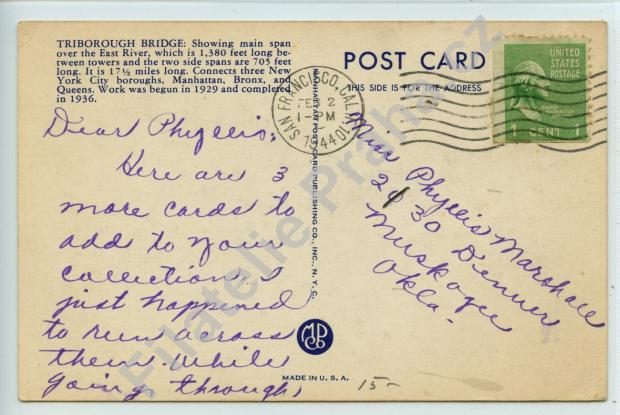 TRIBOROUGH BRIDGE: Showing main span
over the East River, which is 1,380 feet long be-
tween towers and the two side spans are 705 feet
long. It is 17½ miles long. Connects three New
York City boroughs, Manhattan, Bronx, and
Queens. Work was begun in 1929 and completed
in 1936.
POST CARD
THIS SIDE IS FOR THE ADDRESS
UNITED
STATES
POSTAGE
GEORGE
WASHINGTON
1 CENT 1
SAN FRANCISCO, CALIF.
FEB 2
1-PM
1944
MANHATTAN POST CARD PUBLISHING CO., INC., N. Y. C.
Dear Phyllis,
Here are 3
more cards to
add to your
collection. I
just happened
to run across
them while
going through,
Miss Phyllis Marshall
2130 Denver
Muskogee
Okla.
MPCo
MADE IN U. S. A.
15-
Filatelie Praha.cz